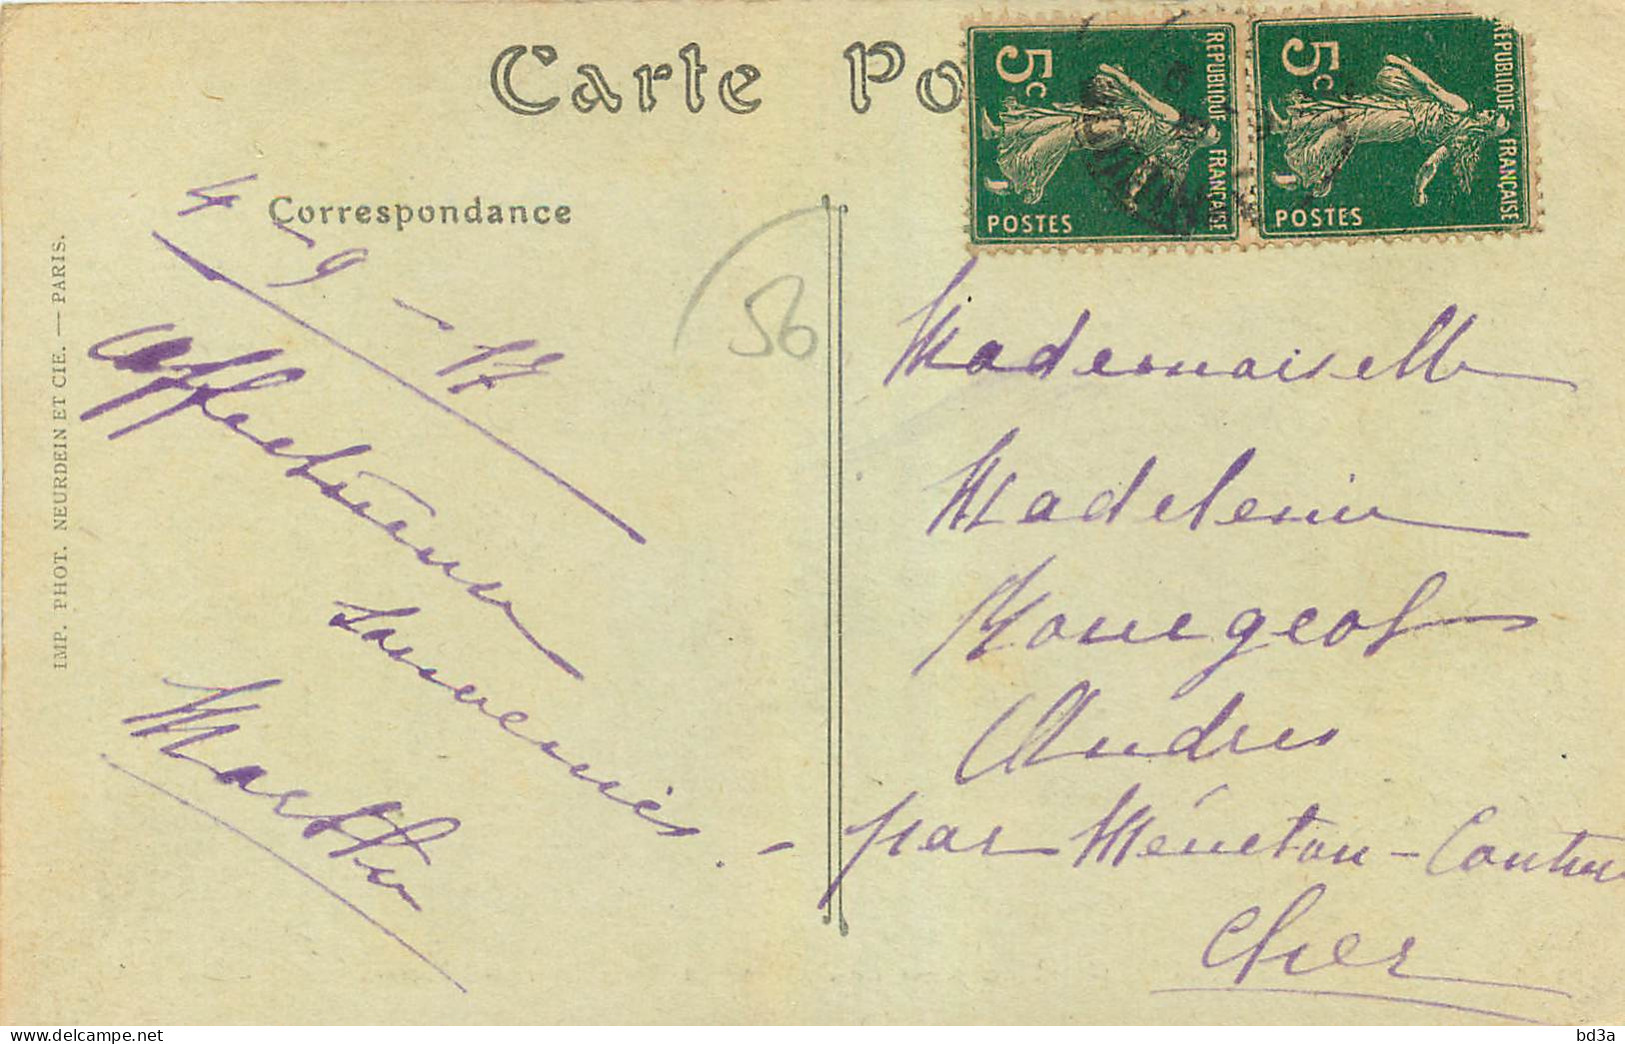 Carte Po
5c
REPUBLIQUE FRANÇAISE
POSTES
5c
REPUBLIQUE FRANÇAISE
POSTES
Correspondance
4-9-17
Affectueux
souvenirs.-
Marthe
56
Mademoiselle
Madeleine
Rougeot
par Ménetou-Couture
Cher
IMP. PHOT. NEURDEIN ET CIE. — PARIS.
bd3a